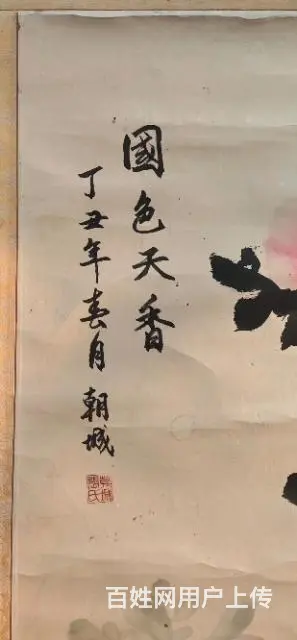 國色天香
丁丑年春月朝城
百姓网用户上传